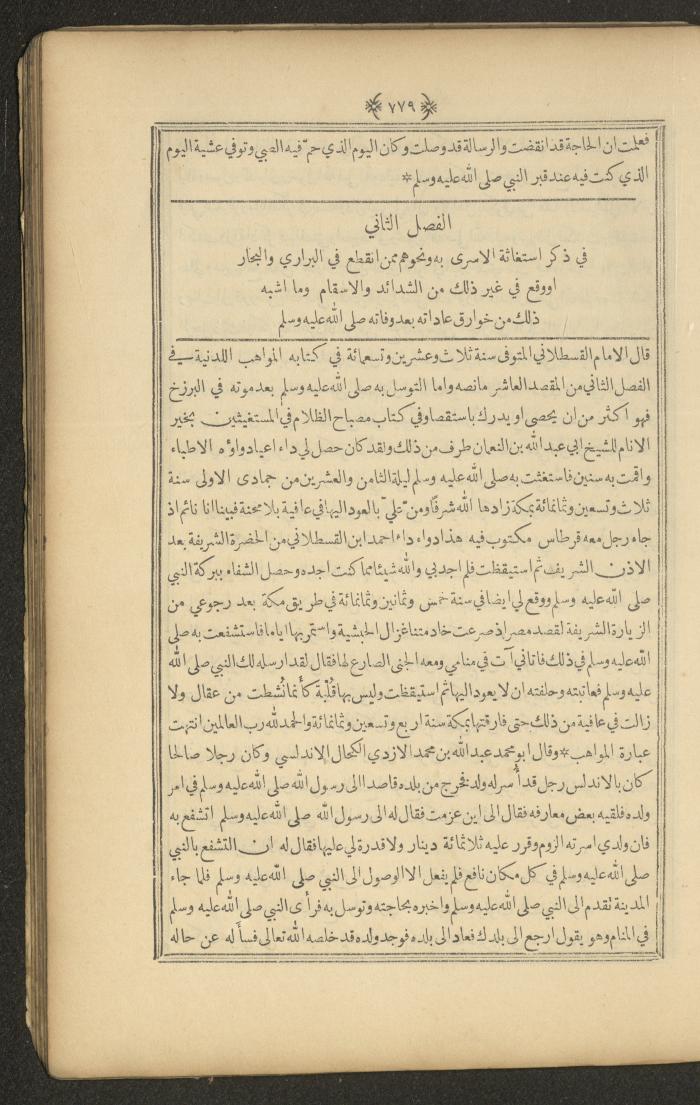 ﴿ ٧٧٩ ﴾
فعلمت ان الحاجة قد انقضت والرسالة قد وصلت وكان اليوم الذي حم فيه الصبي وتوفي عشية اليوم
الذي كنت فيه عند قبر النبي صلى الله عليه وسلم *
الفصل الثاني
في ذكر استغاثة الاسرى به ونحوهم ممن انقطع في البراري والبحار
او وقع في غير ذلك من الشدائد والاسقام وما اشبه
ذلك من خوارق عاداته بعد وفاته صلى الله عليه وسلم
قال الامام القسطلاني المتوفى سنة ثلاث وعشرين وتسعمائة في كتابه المواهب اللدنية في
الفصل الثاني من المقصد العاشر ما نصه واما التوسل به صلى الله عليه وسلم بعد موته في البرزخ
فهو اكثر من ان يحصى او يدرك باستقصا وفي كتاب مصباح الظلام في المستغيثين بخير
الانام للشيخ ابي عبد الله بن النعمان طرف من ذلك ولقد كان حصل لي داء اعيا دواؤه الاطباء
واقمت به سنين فاستغثت به صلى الله عليه وسلم ليلة الثامن والعشرين من جمادى الاولى سنة
ثلاث وتسعين وثمانمائة بمكة زادها الله شرفًا ومنّ عليّ بالعود اليها في عافية بلا محنة فبينا انا نائم اذ
جاء رجل معه قرطاس مكتوب فيه هذا دواء داء احمد ابن القسطلاني من الحضرة الشريفة بعد
الاذن الشريف ثم استيقظت فلم اجد بي والله شيئًا مما كنت اجده وحصل الشفاء ببركة النبي
صلى الله عليه وسلم ووقع لي ايضا في سنة خمس وثمانين وثمانمائة في طريق مكة بعد رجوعي من
الزيارة الشريفة لقصد مصر اذ صرعت خادمتنا غزال الحبشية واستمر بها اياما فاستشفعت به صلى
الله عليه وسلم في ذلك فاتاني آت في منامي ومعه الجني الصارع لها فقال لقد ارسله لك النبي صلى الله
عليه وسلم فعاتبته وحلفته ان لا يعود اليها ثم استيقظت وليس بها قُلبة كأنما نُشطت من عقال ولا
زالت في عافية من ذلك حتى فارقتها بمكة سنة اربع وتسعين وثمانمائة والحمد لله رب العالمين انتهت
عبارة المواهب * وقال ابو محمد عبد الله بن محمد الازدي الكحال الاندلسي وكان رجلا صالحا
كان بالاندلس رجل قد أُسر له ولد فخرج من بلده قاصدا الى رسول الله صلى الله عليه وسلم في امر
ولده فلقيه بعض معارفه فقال الى اين عزمت فقال له الى رسول الله صلى الله عليه وسلم اتشفع به
فان ولدي اسرته الروم وقرر عليه ثلاثمائة دينار ولا قدرة لي عليها فقال له ان التشفع بالنبي
صلى الله عليه وسلم في كل مكان نافع فلم يفعل الا الوصول الى النبي صلى الله عليه وسلم فلما جاء
المدينة تقدم الى النبي صلى الله عليه وسلم واخبره بحاجته وتوسل به فرأى النبي صلى الله عليه وسلم
في المنام وهو يقول ارجع الى بلدك فعاد الى بلده فوجد ولده قد خلصه الله تعالى فسأله عن حاله